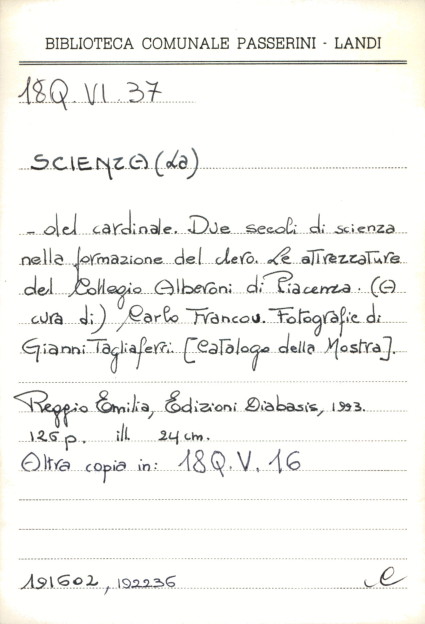 BIBLIOTECA COMUNALE PASSERINI - LANDI
18Q. VI. 37
SCIENZA (La)
- del cardinale. Due secoli di scienza
nella formazione del clero. Le attrezzature
del Collegio Alberoni di Piacenza. (A
cura di) Carlo Francou. Fotografie di
Gianni Tagliaferri. [Catalogo della Mostra].
Reggio Emilia, Edizioni Diabasis, 1993.
126 p. ill. 24 cm.
Altra copia in: 18Q. V. 16
191602, 192236